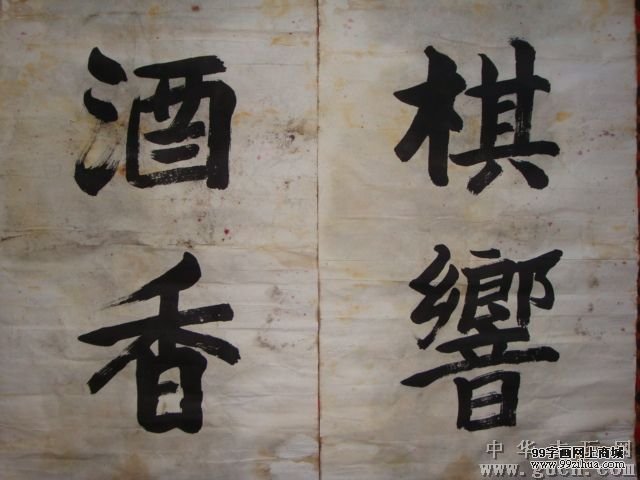 棋響
酒香
中华古玩网
www.gucn.com
99字画网上商城
www.99zihua.com